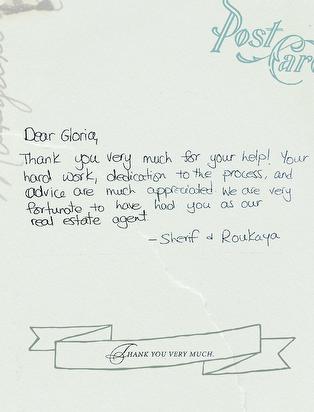 Post
Card
Dear Gloria,
Thank you very much for your help! Your
hard work, dedication to the process, and
advice are much appreciated. We are very
fortunate to have had you as our
real estate agent.
- Sherif & Roukaya
THANK YOU VERY MUCH.